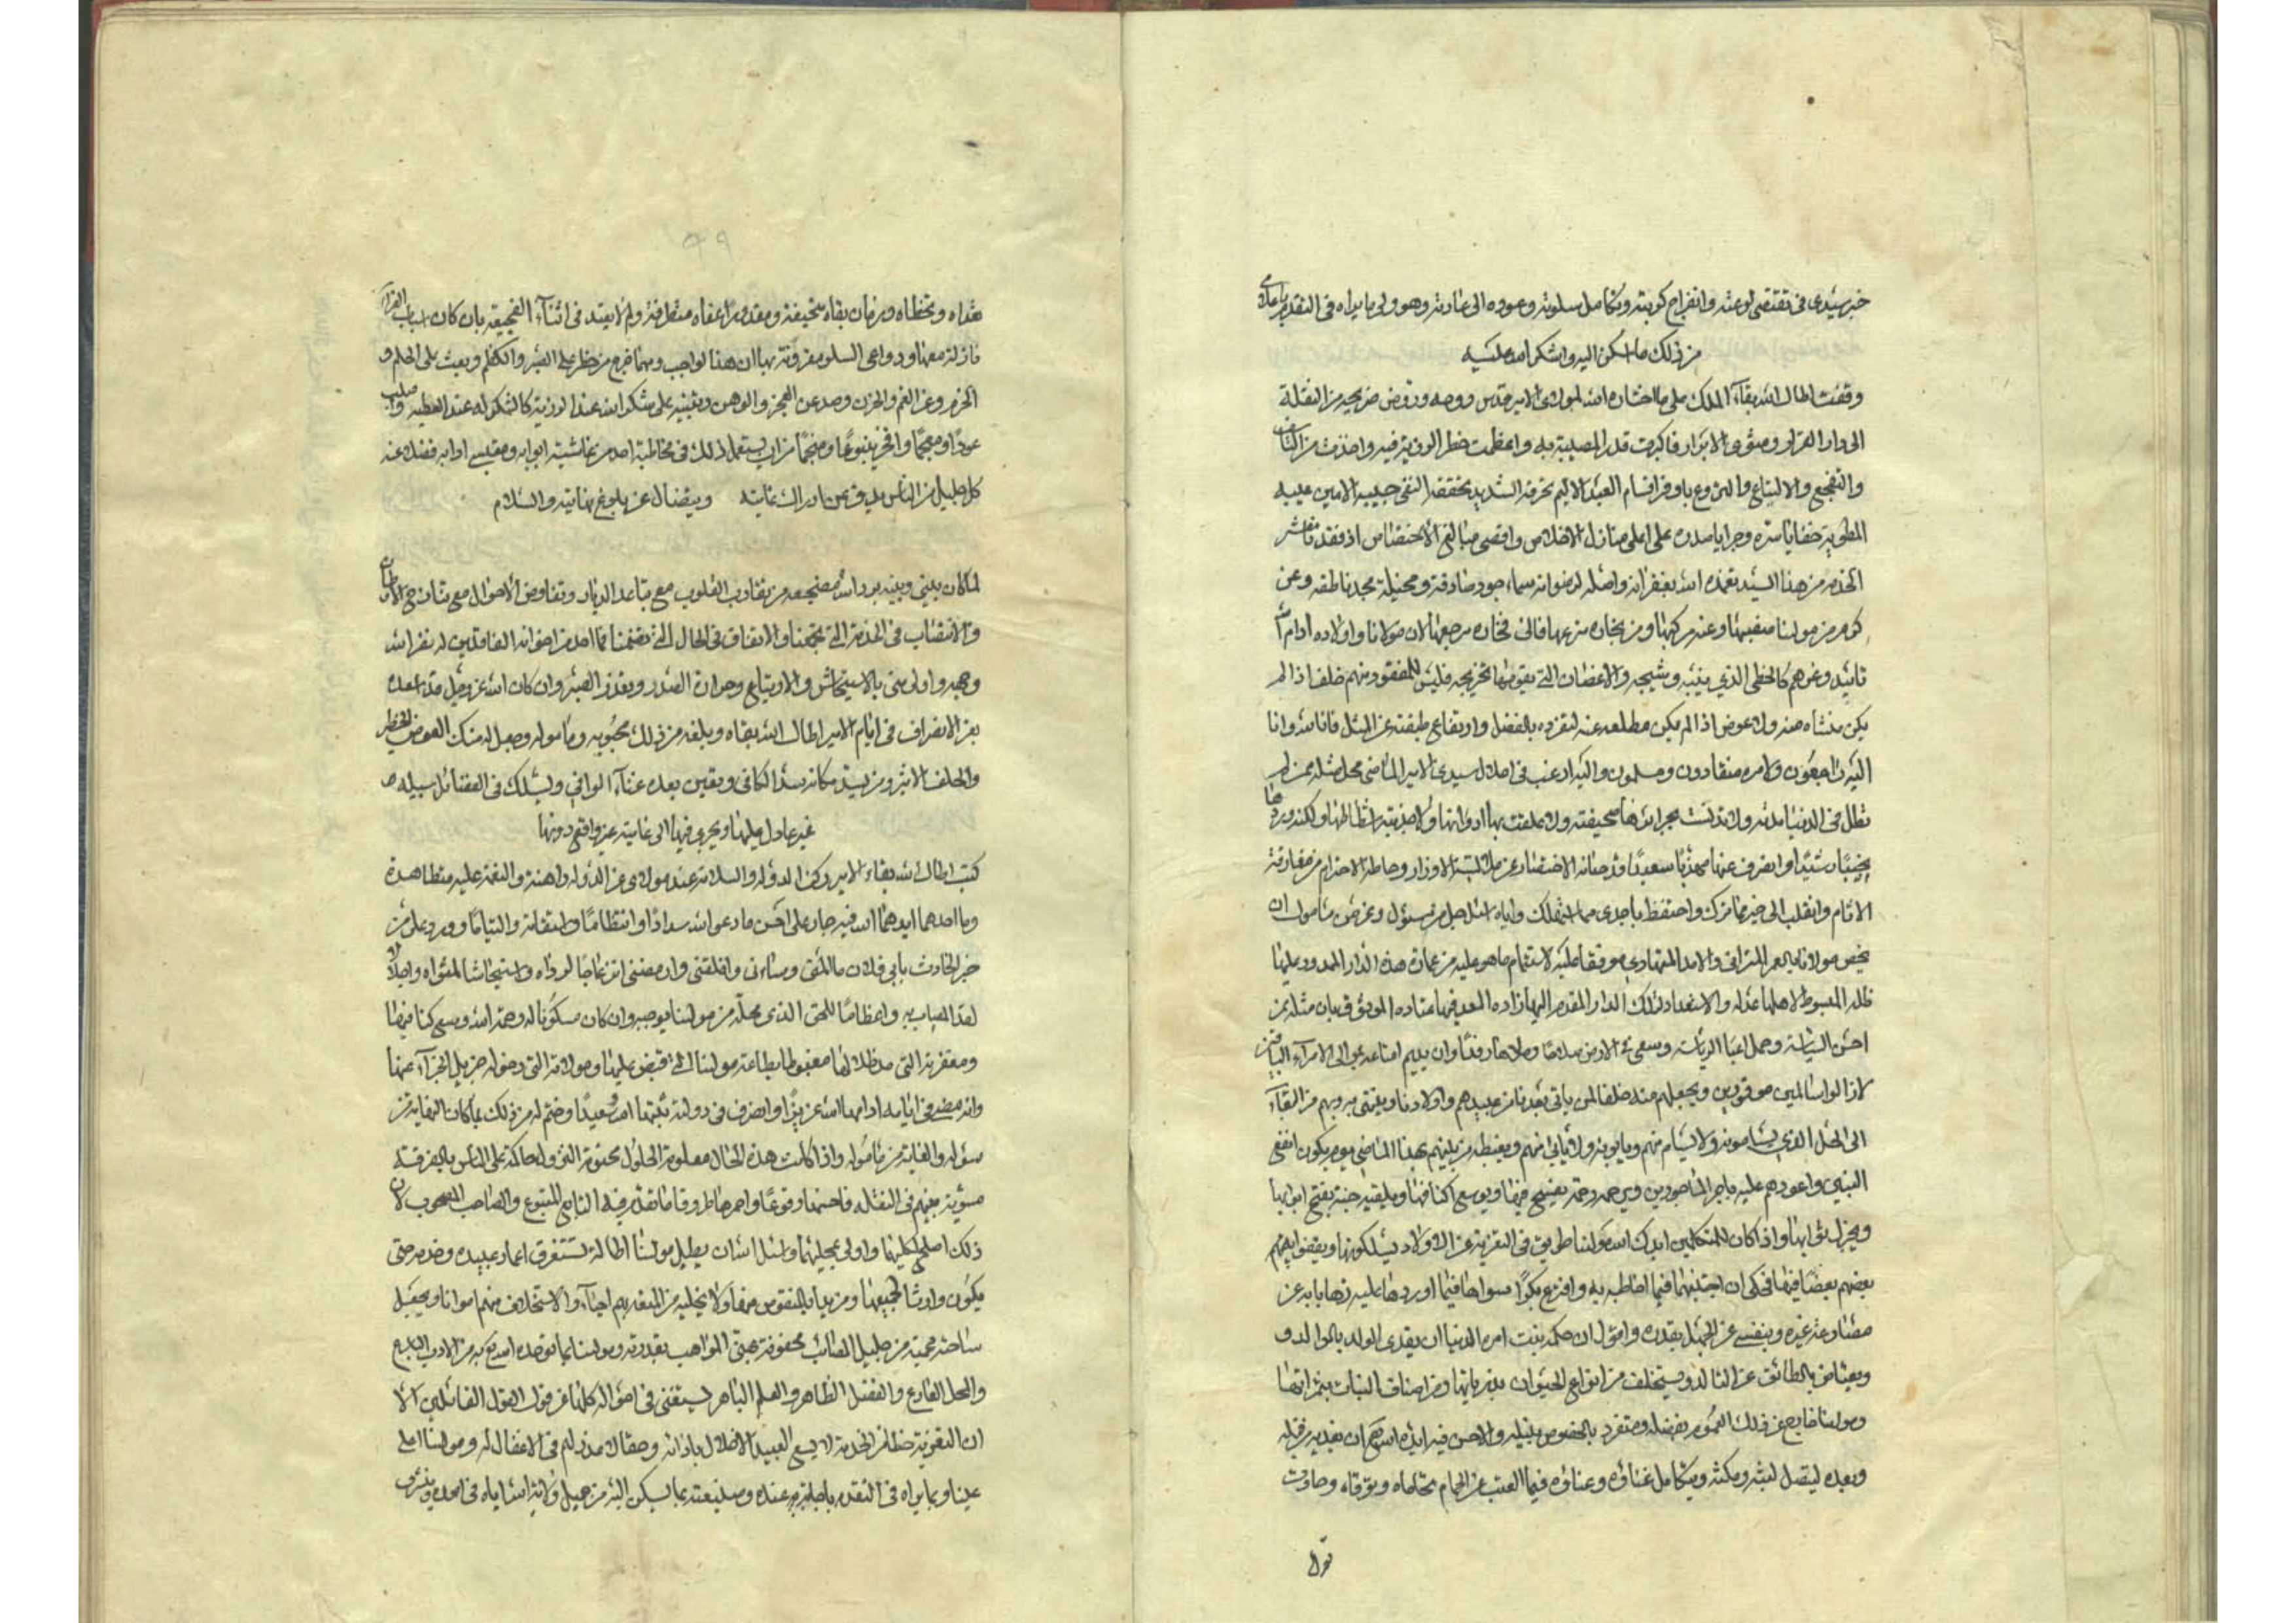 خبر سيدي في تقتضي لوعته وانفراج كربته وتكامل سلوته وعوده الى عادته وهو ولي ما يراه في التقدم باعلامي
من ذلك ما اسكن اليه واشكر الله عليه
وقفت اطال الله بقاء الملك على ما اختاره الله لمولاي الامير قدس روحه وروض ضريحه من النقلة
الى دار القرار ومثوى الابرار فاكبرت قدر المصيبة به واعظمت خطر الرزية فيه واخذت من التاسف
والتفجع والالتياع والنزوع باوفر اقسام العبد الاليم بحرقه الشديد تحققه النقي جيبه الامين غيبه
المطوية خفايا سره وجرايا صدره على اعلى منازل الاخلاص واقصى مبالغ الاختصاص اذ فقد
الخدم من هذا السيد تغمده الله بغفرانه واصله لرضوانه سماء جود صادقة ومخيلة مجد ناطقة وعن
كرم من مولانا مغيبها وعنه مركبها ومن نجاره منزعها والى فخاره مرجعها لان مولانا واولاده ادام الله
تاييده وعزهم كالخطي الذي ينبته وشيجه والاغصان التي يقومها تخريجه فليس للمفقود منهم خلف اذا لم
يكن منشاه منه ولا عوض اذ الم يكن مطلعه عنه لتفرده بالفضل وارتفاع طبقته عن المثل فانا لله وانا
اليه راجعون ولامره منقادون ومسلمون واليه ارغب في احلال سيدي الامير الماضي محل مثله ممن لم
تطل في الدنيا مدته ولا تدنست بجرائرها صحيفته ولا علقت بها ادرانها ولا جذبته اشطانها ولكنه وردها
رشيدا وانصرف عنها مهذبا سعيدا قد صانه الاختصار عن ملابسة الاوزار وحاطه الاخترام من مقارفة
الاثام وانقلب الى خير مما ترك واحتفظ باجدى مما استهلك واياه اسئل اجل من سئول وعز من مامول ان
يخص مولانا بالعمر المتراخي والامد المتمادي موفقا عليه لاستتمام ماهو عليه من عمارة هذه الدار الممدود عليها
ظله المبسوط لاهلها عدله والاستعداد لتلك الدار المقدم اليها زاده المعد فيها عتاده الموثوق بان مثله ممن
احسن السياسة وحمل اعباء الرياسة وسعى في الارض صلاحا وملاها رفدا وان يديم امتاعه بموالي الامراء الباقين
لازالوا سالمين موقورين ويجعلهم منه خلفا لمن ياتي بعدنا من عبيدهم واولادنا وينتهي به وبهم من البقاء
الى الحد الذي يسامونه ولا يسام منهم ويابونه ولا يابى منهم ويغبطه من بينهم بهذا الماضي يوم يكون انفع
النبيين واعودهم عليه باجر المأجورين ويرحمه رحمة يفسح فيها ويوسع اكنافها ويلقيه جنة يفتح ابوابها
ويجزل ثوابها واذ كان للمتكلمين ايدك الله مولانا طريق في التعزية عن الاولاد يسلكونها ويقفوا بهم
بعضهم بعضا فيها فحكمي ان اجتنبها فيما اخاطبه به وافترع بكرا سواها فيما اورده عليه ذهابا به عن
مضارعة غيره وبنفسي عن الجهل بقدره واقول ان حكمة بنت امر الدنيا ان يفدى الولد بالوالد و
ويعتاض بالطارف عن التالد ويستخلف من انواع الحيوان بذرياتها ومن اصناف النبات بثمراتها
ومولانا خارج عن ذلك العموم بفضله ومتفرد بالخصوص بنبله والاحسن فيه ايده الله ان يفديه من قبله
وبعده ليتصل لبثه ومكثه ويتكامل غناؤه وعناؤه فيما العتب عن الحمام يتحاماه ويتوقاه وحادث
قول
٩٩
تعداه وتخطاه وزمان بقاه بتحيفه ومقدور اعفاه متطرفه ولم لا يعتد في اثناء الفجيعة بان كان اسباب العزاء
نازلة معها ودواعي السلو مقرونة بها ان هذا لواجب ومهما خرج من حظر على الصبر والكظم وبعث على الحلم و
الحزم وعن الغم والحزن وصد عن العجز والوهن وتثبيه على شكر الله عند الرزية كالشكر له عند العطية واصلب
عودا ومعجما وافخر ينبوعا ومنجما من ان يستعمل ذلك في مخاطبة احد من غاشية ابوابه ومقتبسي ادابه فضلا عنه
كل جليل من الناس يدق عن ادراك غايته ويتضال عن بلوغ نهايته والسلام
لما كان بيني وبينه برد الله مضجعه من تقارب القلوب مع تباعد الديار وتفاوض الاحوال مع تنازح الاوطان
والانتساب في الخدمة التي تجمعنا والاتفاق في الحال التي تضمنا فما احد من اخوانه الفاقدين له نضر الله
وجهه واولى مني بالاستيحاش والارتياع وحرارة الصدر وتعذر الصبر وان كان الله عز وجل قد اسعده
بعز الانصراف في ايام الامير اطال الله بقاه وبلغه من ذلك محبوبه ومأموله وجعل له منك العوض الخطير
والخلف الاثير ومن يسد مكانه سدا الكافي ويغني بعده غناء الوافي ويسلك في الفضائل سبيله
غير عادل عليها ويجري فيها الى غايته غير واقع دونها
كتبت اطال الله بقاء الامير ركن الدولة والسلامة عند مولاي عز الدولة راهنة والنعمة عليه متظاهرة
وما احدهما ايدهما الله فيه جار على احسن ما دعو الله سدادا وانتظاما واستقامة والتياما وورد علي من
خبر الحادث بابي فلان ما المني وساءني واقلقني وارمضني انزعاجا لرداه واستيحاشا لمثواه واجلالا
لقدر المصاب به واعظاما للحق الذي محله من مولينا يوجبه وان كان مسكونا له رحمة الله ويسعى كنا فيها
ومغفرته التي مد ظلالها مغبوطا بطاعة مولينا التي قبض عليها وموالاته التي دخوله جزيل الجزاء عنها
وانه مضى في ايامه ادامها الله عزيزا وانصرف في دولته ثبتها الله سعيدا وختم له من ذلك بما كان النهاية من
سؤله والغاية من مأموله واذا كانت هذه الحال معلومة الحلول محتومة النزول حاكمة على الناس بالفرقة
مسوية بينهم في النقلة فاحسنها وقوعا واجملها طروقا ما تقدم فيه التابع المتبوع والصاحب المصحوب لان
ذلك اصلح لكليهما واولى بجليتهما واسئل الله ان يطيل مولينا اطالة تستغرق اعمار عبيده وخدمه حتى
يكون وارثا لجميعها ومزيدا بالنقوص منها ولا يخليه من التعذيهم احياء والاستخلاف منهم امواتا ويجعل
ساحته محمية من جليل المصائب محفوفة بهني المواهب بقدرته ومولينا بما توحده الله به من الادب البارع
والمحل الفارع والفضل الظاهر والعلم الباهر يستغني في احواله كلها عن قول القول القائلين الا
ان التعزية حظا من الخدمة لا يسع العبيد الاخلال باداته وحقا لا عذر لهم في الاغفال له ومولينا اعلى
عينا وبما يراه في التقدم باجابتي به عنده وصلتعته بما يسكن اليه من جميل ولاية الله اياه في احده ويشرف